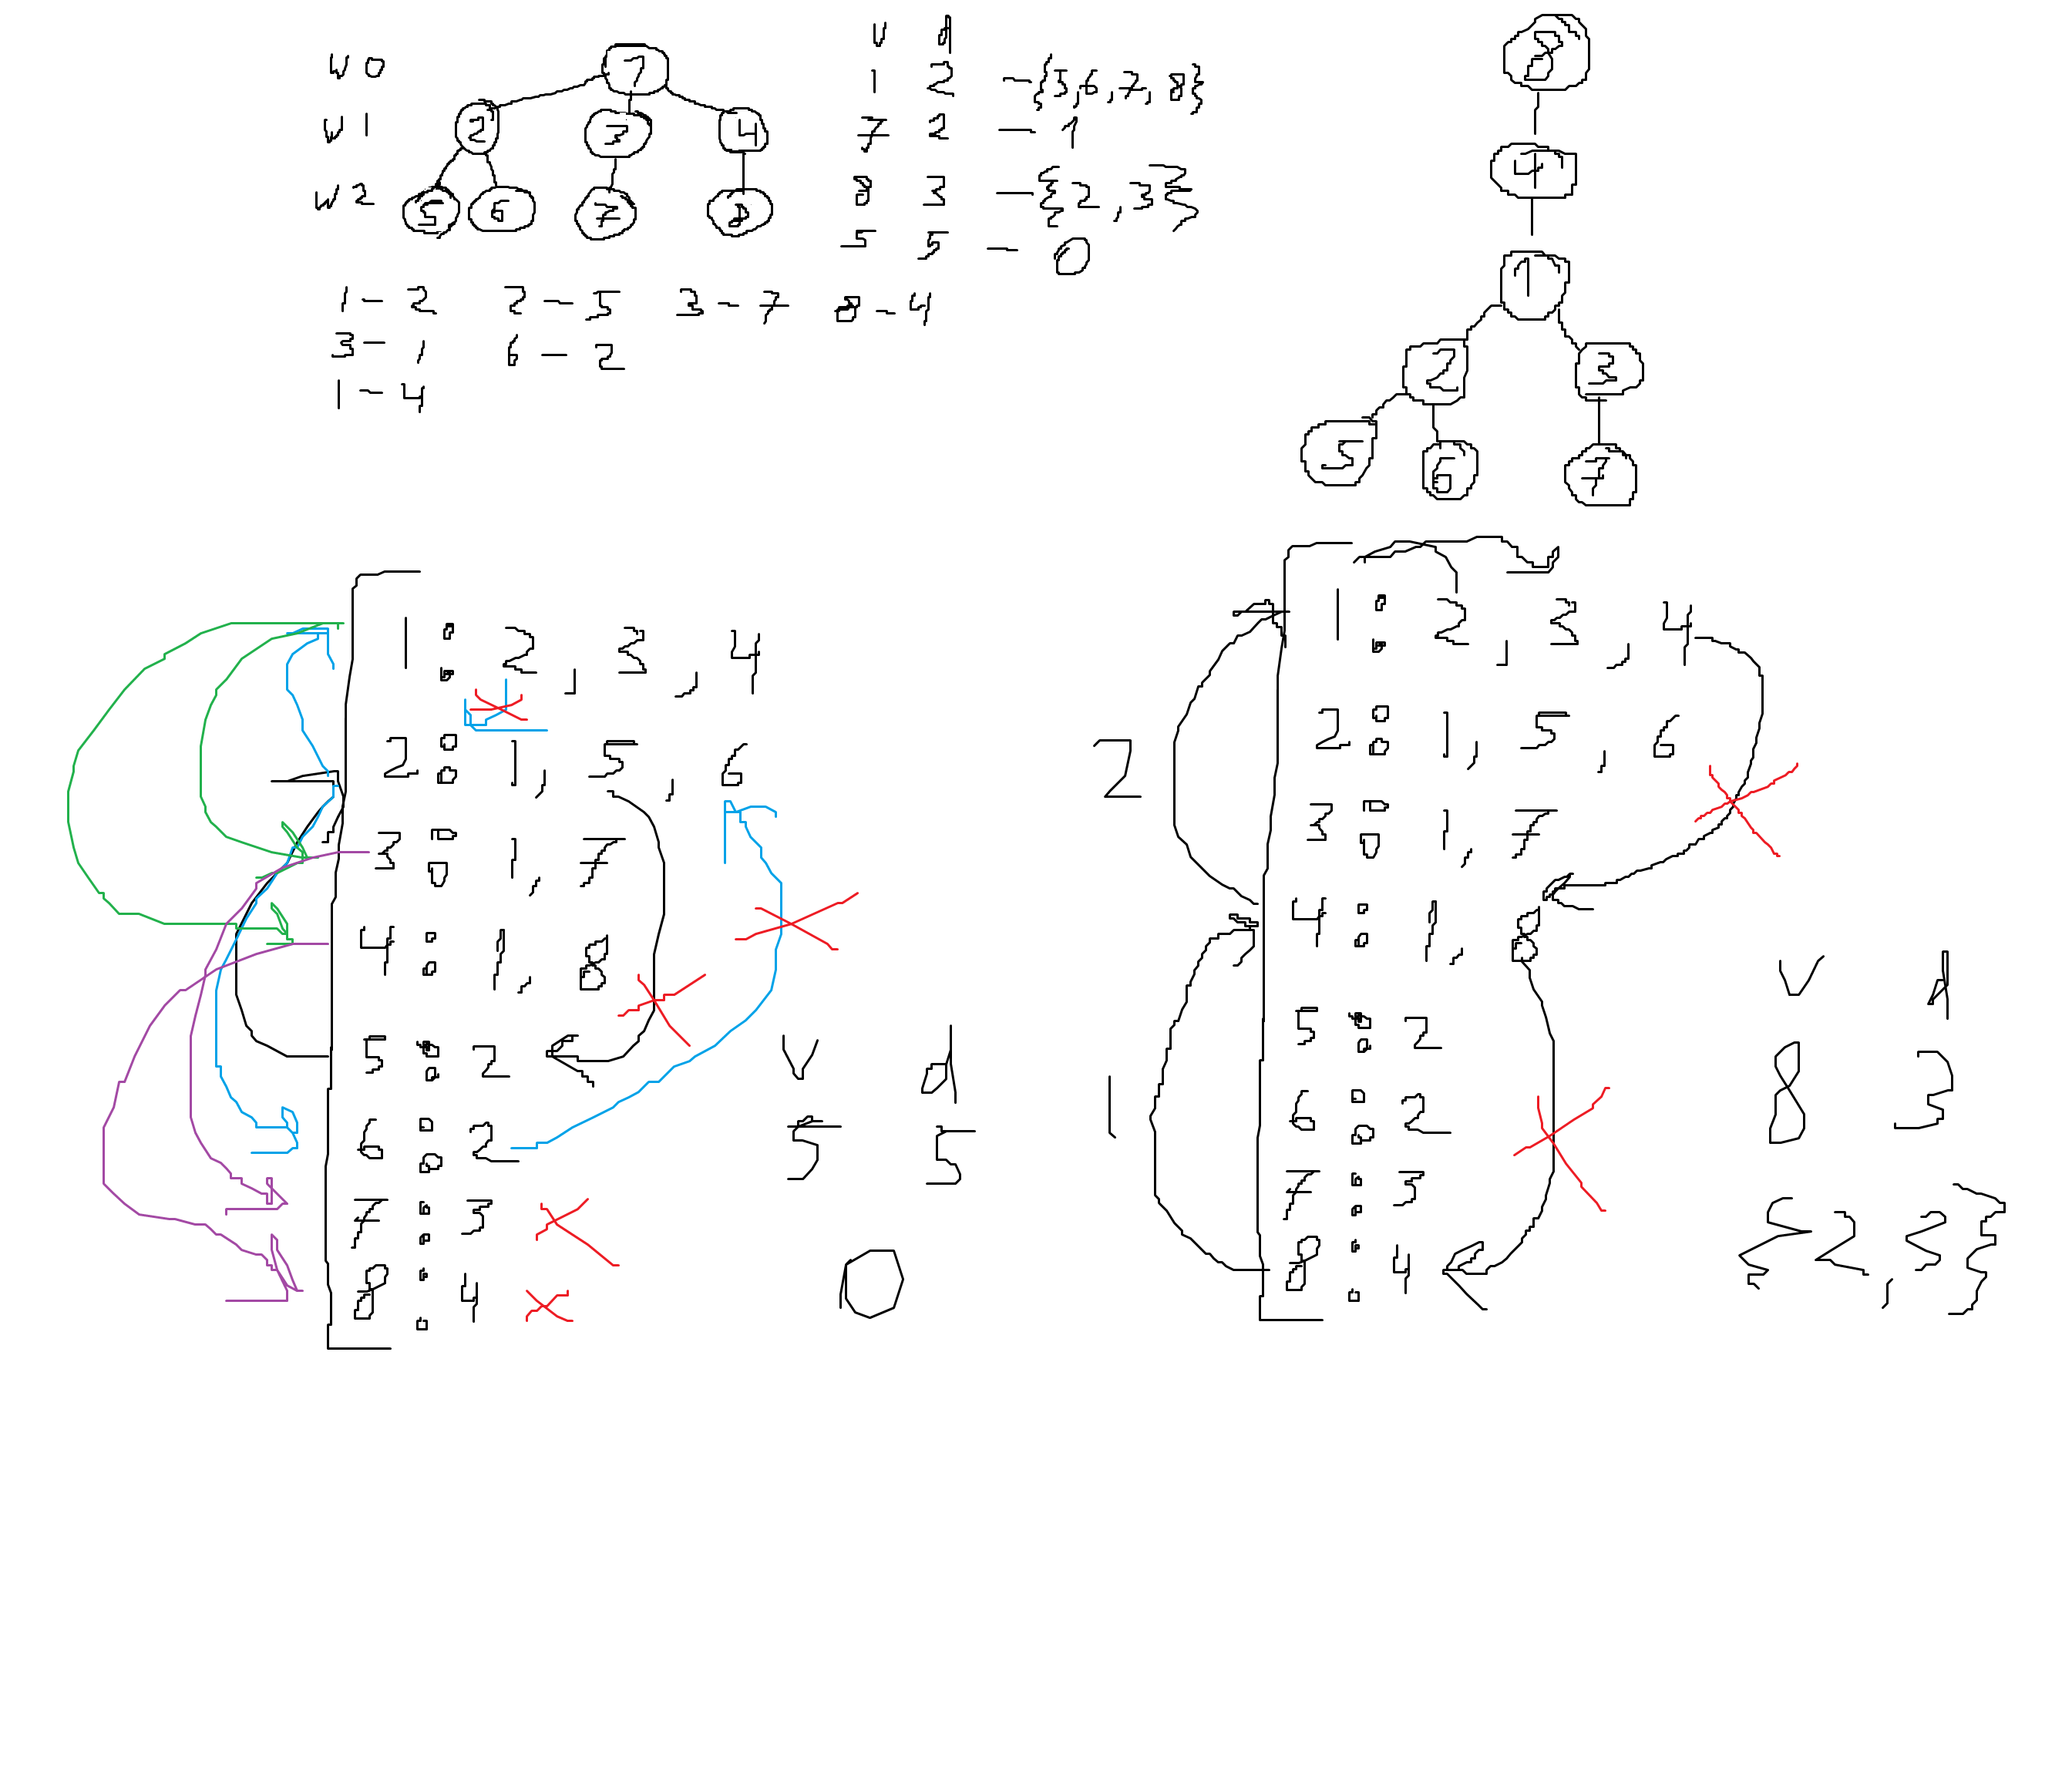 W 0
W 1
W 2
7
2 3 4
5 6 7 8
v d
1 2 - {5,6,7,8}
7 2 - 1
8 3 - {2,3}
5 5 - 0
1 - 2 2 - 5 3 - 7 8 - 4
3 - 1 6 - 2
1 - 4
8
4
1
2 3
5 6 7
1: 2, 3, 4
2: 1, 5, 6
3: 1, 7
4: 1, 8
5: 2
6: 2
7: 3
8: 4
v d
5 5
0
2
1
1: 2, 3, 4
2: 1, 5, 6
3: 1, 7
4: 1, 8
5: 2
6: 2
7: 3
8: 4
v d
8 3
{2,3}